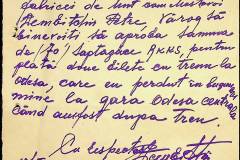 fabricei de sunt samlustovii
Petre, Vă rog să
binevoiți să aproba samma
de (70) Septaghec RKKS, pentru
plată done bilete cu trem la
Odesa, care eu perdut în buzuna
mine la gara Odesa centrala
când am fost dupa tren.
Cu respect